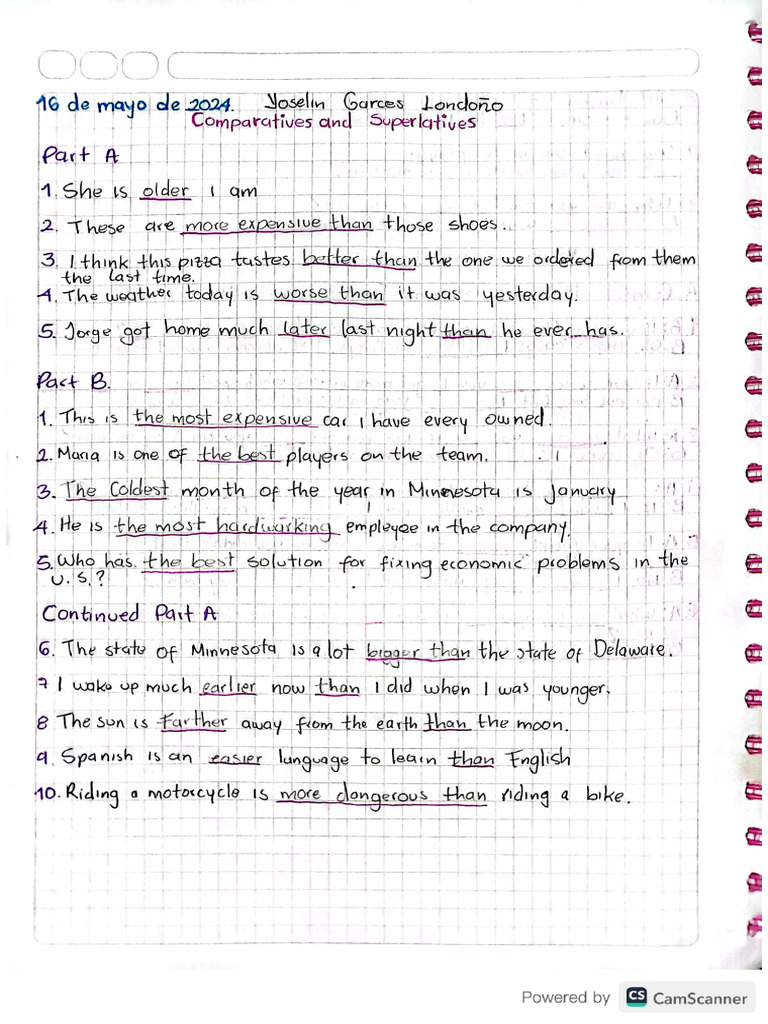 16 de mayo de 2024. Yoselin Garces Londoño
Comparatives and Superlatives
Part A
1. She is older I am
2. These are more expensive than those shoes.
3. I think this pizza tastes better than the one we ordered from them
the last time.
4. The weather today is worse than it was yesterday.
5. Jorge got home much later last night than he ever has.
Part B.
1. This is the most expensive car I have every owned.
2. Maria is one of the best players on the team.
3. The Coldest month of the year in Minnesota is January
4. He is the most hardwarking employee in the company.
5. Who has the best solution for fixing economic problems in the
U.S.?
Continued Part A
6. The state of Minnesota is a lot bigger than the state of Delaware.
7 I wake up much earlier now than I did when I was younger.
8 The sun is farther away from the earth than the moon.
9. Spanish is an easier language to learn than English
10. Riding a motorcycle is more dangerous than riding a bike.
Powered by CS CamScanner